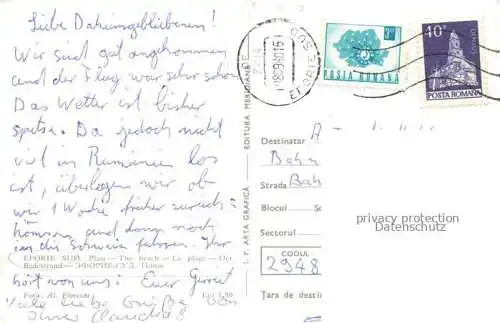 Liebe Daheimgebliebenen!
Wir sind gut angekommen
und der Flug war sehr schön
Das Wetter ist bisher
spitze. Da jedoch nicht
viel in Rumänien los
ist, überlegen wir ob
wir 1 Woche früher zurück
kommen und dann noch
in die Schweiz fahren. Ihr
EFORIE SUD. Plaja — The beach — La plage — Der
Badestrand — ЭФОРИЕ-СУД. Пляж
hört von uns! Euer Gernot
Foto: Al. Florescu
Lei 1,50
Viele liebe Grüße von
Claudia!
EDITURA MERIDIANE
I. P. ARTA GRAFICĂ
EFORIE SUD
POSTA ROMANA
40B
POSTA ROMANA
Destinatar
Bahn
Strada Bah
Blocul
Scara
Sectorul
CODUL
2948
Țara de
privacy protection
Datenschutz